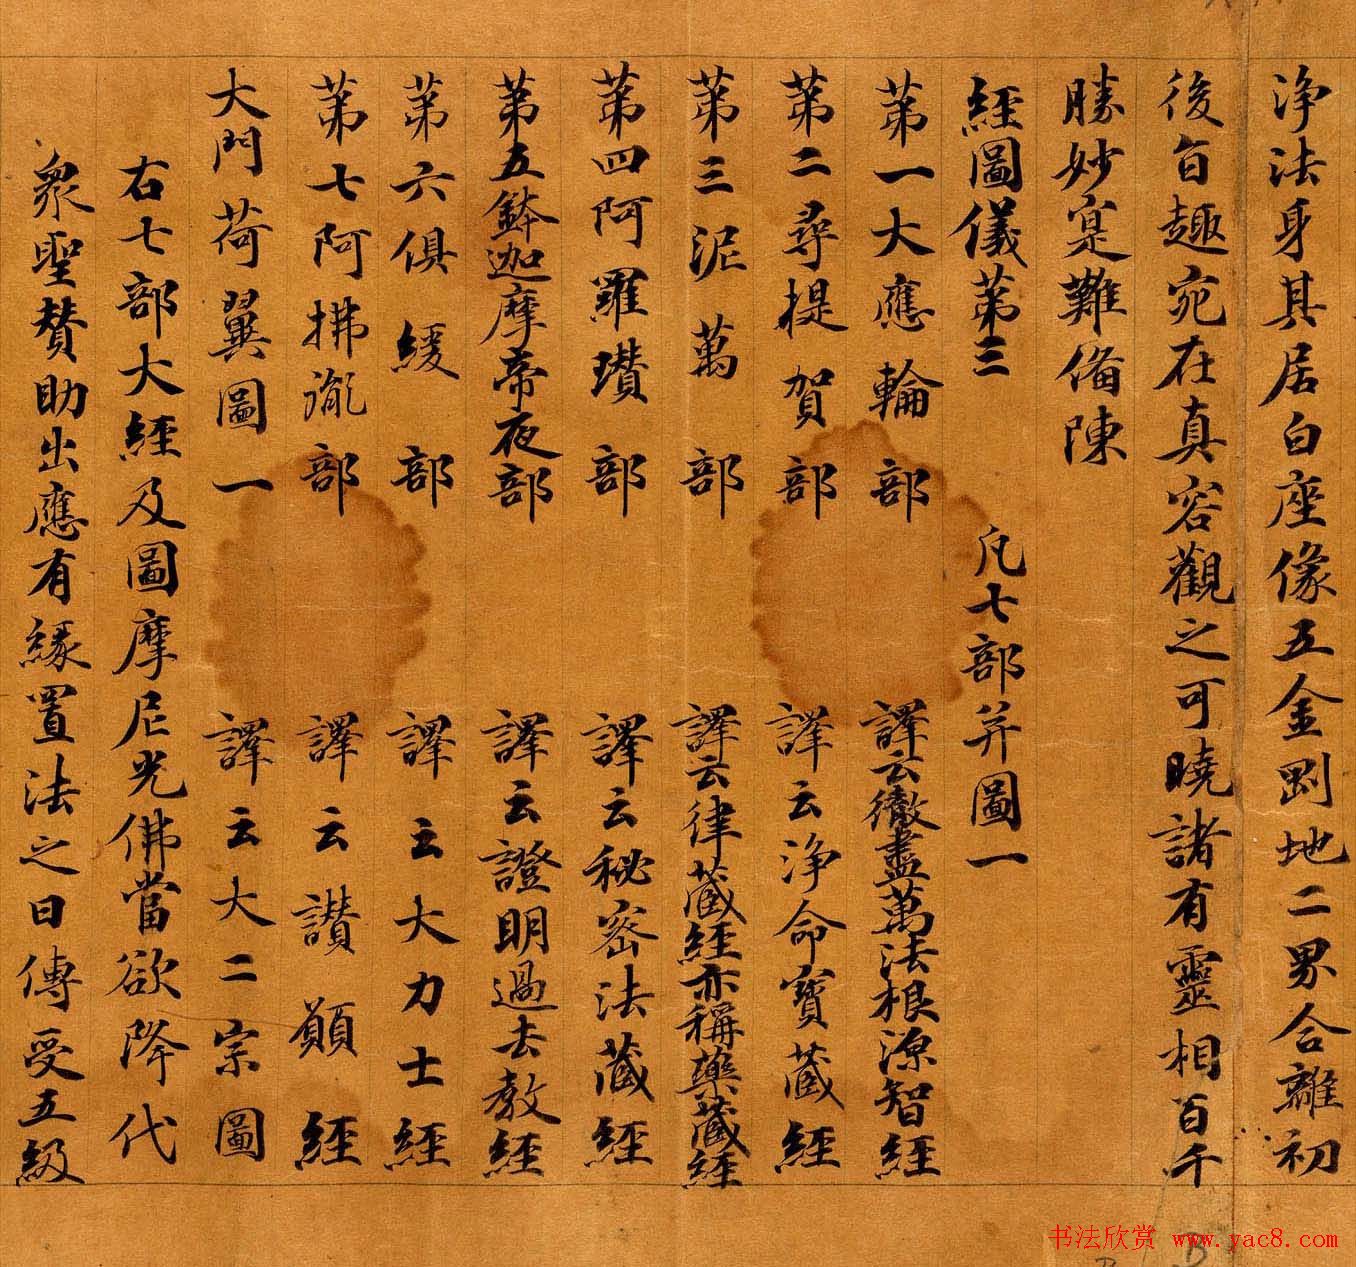 淨法身其居白座像五金剛地二界合離初
後旨趣宛在真容觀之可曉諸有靈相百千
勝妙寔難俻陳
經圖儀苐三 凡七部并圖一
苐一大應輪部 譯云徹盡萬法根源智經
苐二尋提賀部 譯云淨命寶藏經
苐三泥萬部 譯云律藏經亦稱藥藏經
苐四阿羅瓚部 譯云秘密法藏經
苐五鉢迦摩帝夜部 譯云證明過去教經
苐六俱緩部 譯云大力士經
苐七阿拂胤部 譯云讃願經
大門荷翼圖一 譯云大二宗圖
右七部大經及圖摩尼光佛當欲降代
衆聖贊助出應有緣置法之日傳受五級
书法欣赏 www.yac8.com